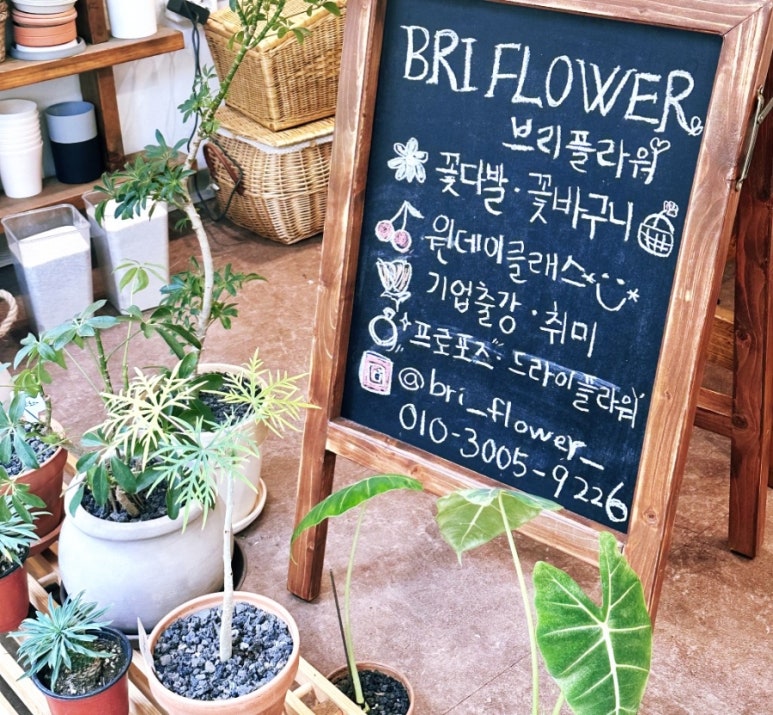 BRI FLOWER
브리플라워
꽃다발·꽃바구니
원데이클래스
기업출강·취미
프로포즈·드라이플라워
@bri_flower_
010-3005-9226